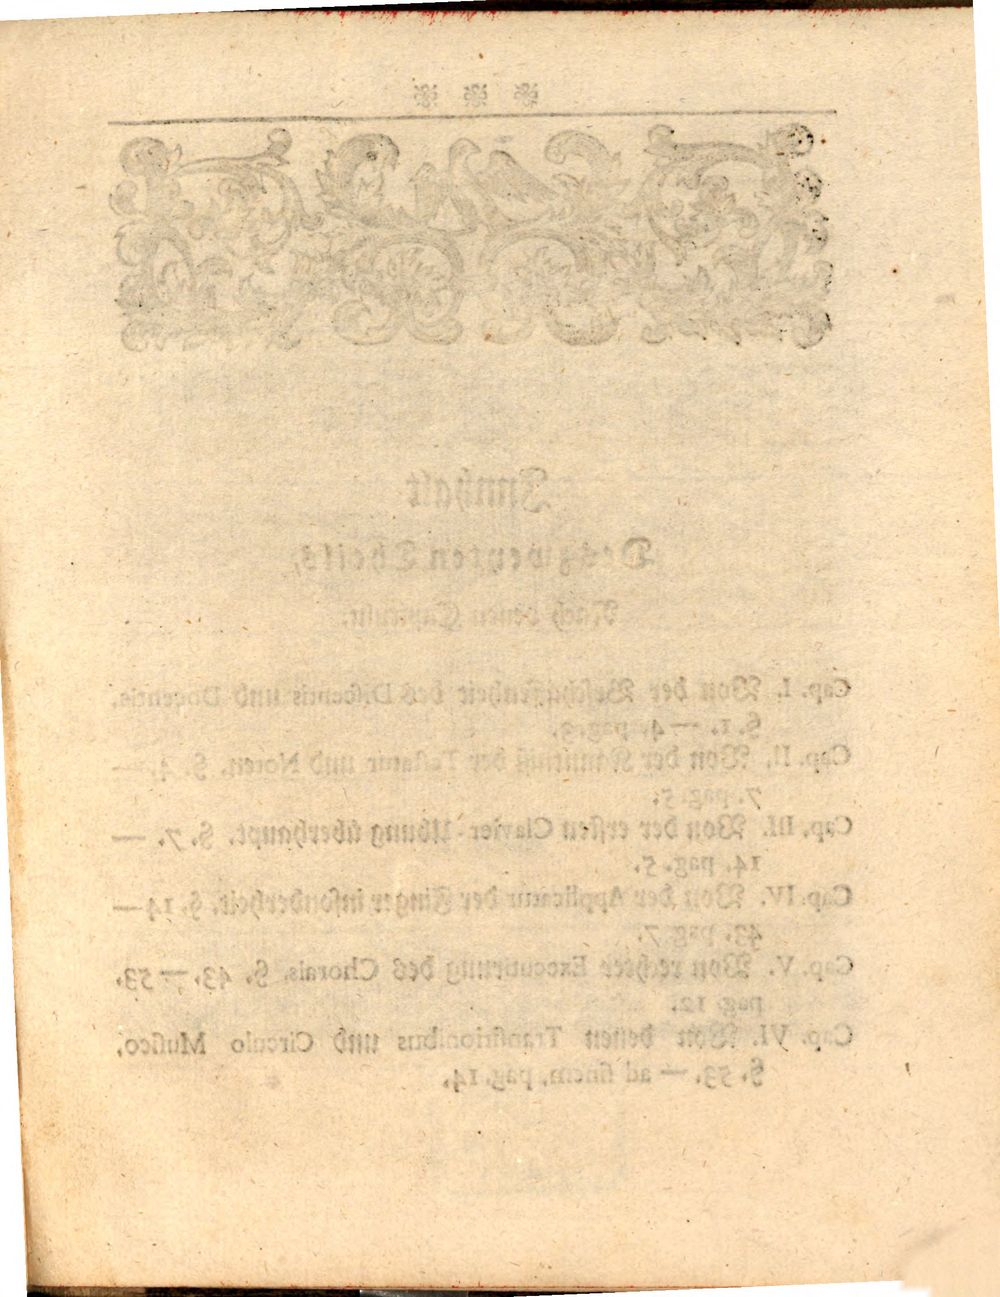 Innhalt
Des zweyten Theils,
Nach denen Capituln.
Cap. I. Von der Beschaffenheit des Discentis und Docentis.
§. 1. — 4. pag. 3.
Cap. II. Von der Känntniß der Tastatur und Noten. §. 4. —
7. pag. 5.
Cap. III. Von der ersten Clavier-Ubung überhaupt. §. 7. —
14. pag. 5.
Cap. IV. Von der Applicatur der Finger insonderheit. §. 14 —
43. pag. 7.
Cap. V. Von rechter Executirung des Chorals. §. 43. — 53.
pag. 12.
Cap. VI. Von denen Transitionibus und Circulo Musico,
§. 53. — ad finem, pag. 14.